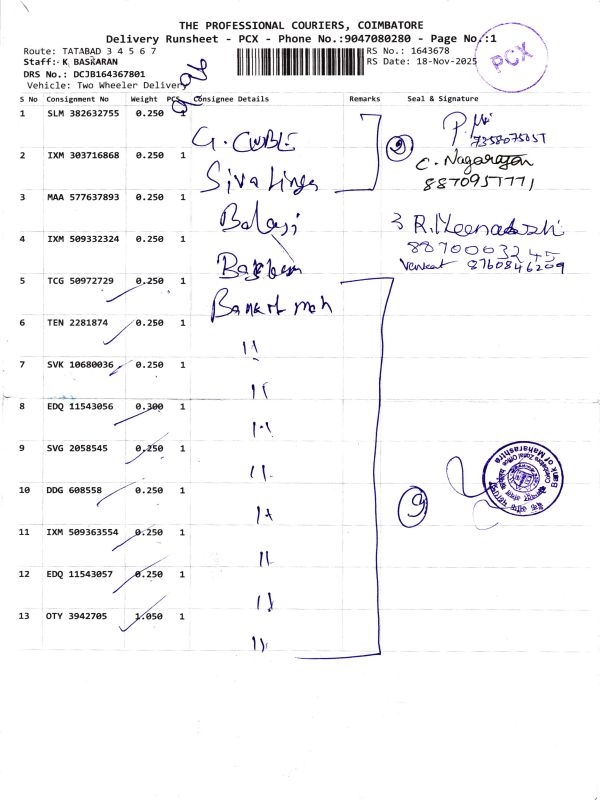 THE PROFESSIONAL COURIERS, COIMBATORE
Delivery Runsheet - PCX - Phone No.:9047080280 - Page No.:1
Route: TATABAD 3 4 5 6 7
RS No.: 1643678
Staff:- K BASKARAN
RS Date: 18-Nov-2025
DRS No.: DCJB164367801
Vehicle: Two Wheeler Delivery
PCX
S No Consignment No Weight PCS Consignee Details Remarks Seal & Signature
1 SLM 382632755 0.250 1 G. CUBE
7358075051
2 IXM 303716868 0.250 1 Sivalinga
C. Nagarajan
8870951771
3 MAA 577637893 0.250 1 Balaji
3 R. Meenakshi
8870003245
4 IXM 509332324 0.250 1
Venkat 8760846209
5 TCG 50972729 0.250 1 Bank of mah
6 TEN 2281874 0.250 1 "
7 SVK 10680036 0.250 1 "
8 EDQ 11543056 0.300 1 "
9 SVG 2058545 0.250 1 "
Bank of Maharashtra
Coimbatore Zonal Office
10 DDG 608558 0.250 1 "
9
11 IXM 509363554 0.250 1 "
12 EDQ 11543057 0.250 1 "
13 OTY 3942705 1.050 1 "